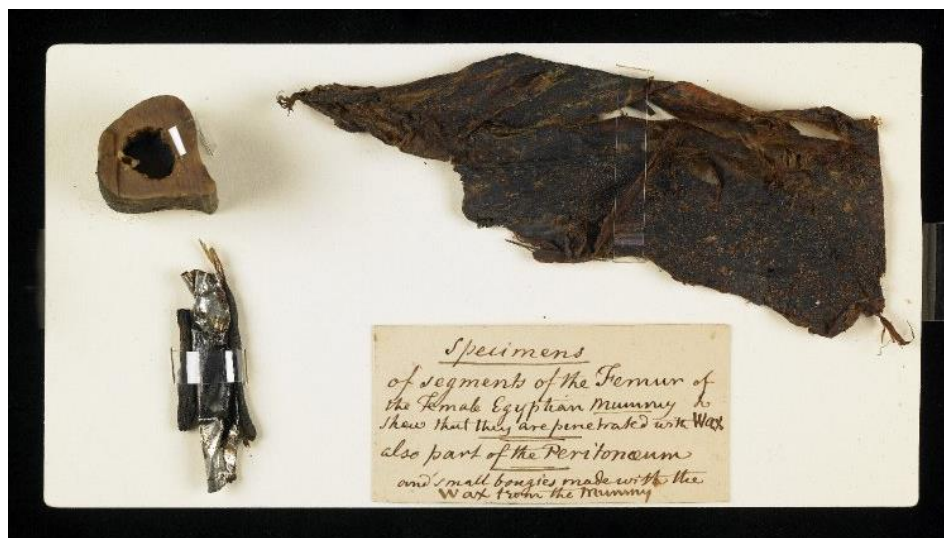 Specimens
of segments of the Femur of
the Female Egyptian Mummy to
shew that they are penetrated with Wax
also part of the Peritonæum
and small bougies made with the
Wax from the Mummy